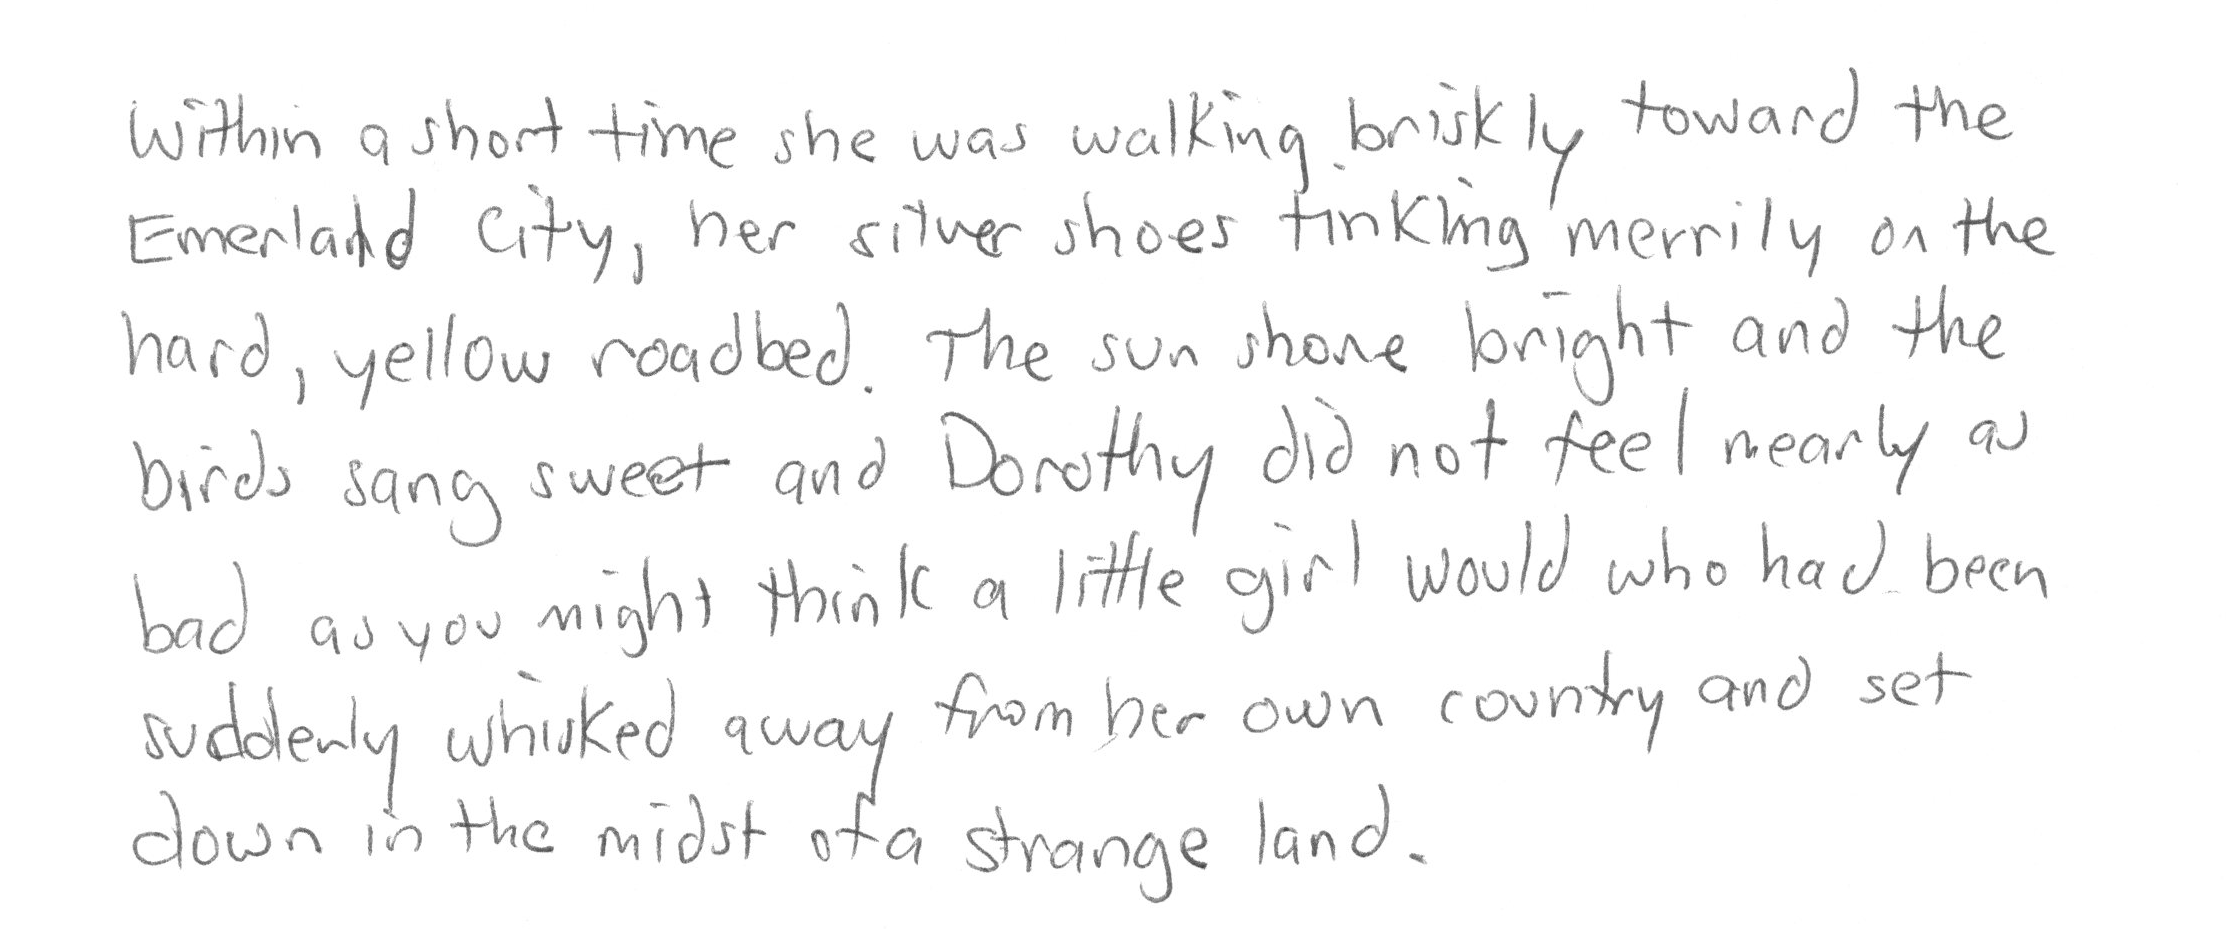 Within a short time she was walking briskly toward the
Emerland City, her silver shoes tinkling merrily on the
hard, yellow roadbed. The sun shone bright and the
birds sang sweet and Dorothy did not feel nearly as
bad as you might think a little girl would who had been
suddenly whisked away from her own country and set
down in the midst of a strange land.